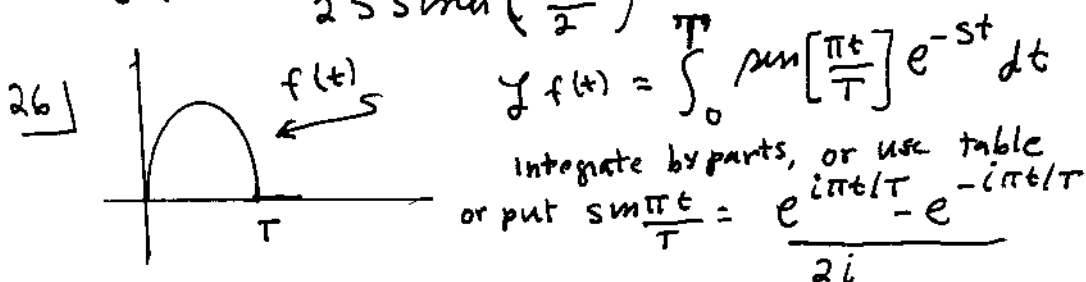 2 s sinh ( — / 2 )
26] f(t) ℒ f(t) = ∫₀ᵀ sin[πt/T] e^{-st} dt
Integrate by parts, or use table
or put sin πt/T = (e^{iπt/T} - e^{-iπt/T}) / 2i
T